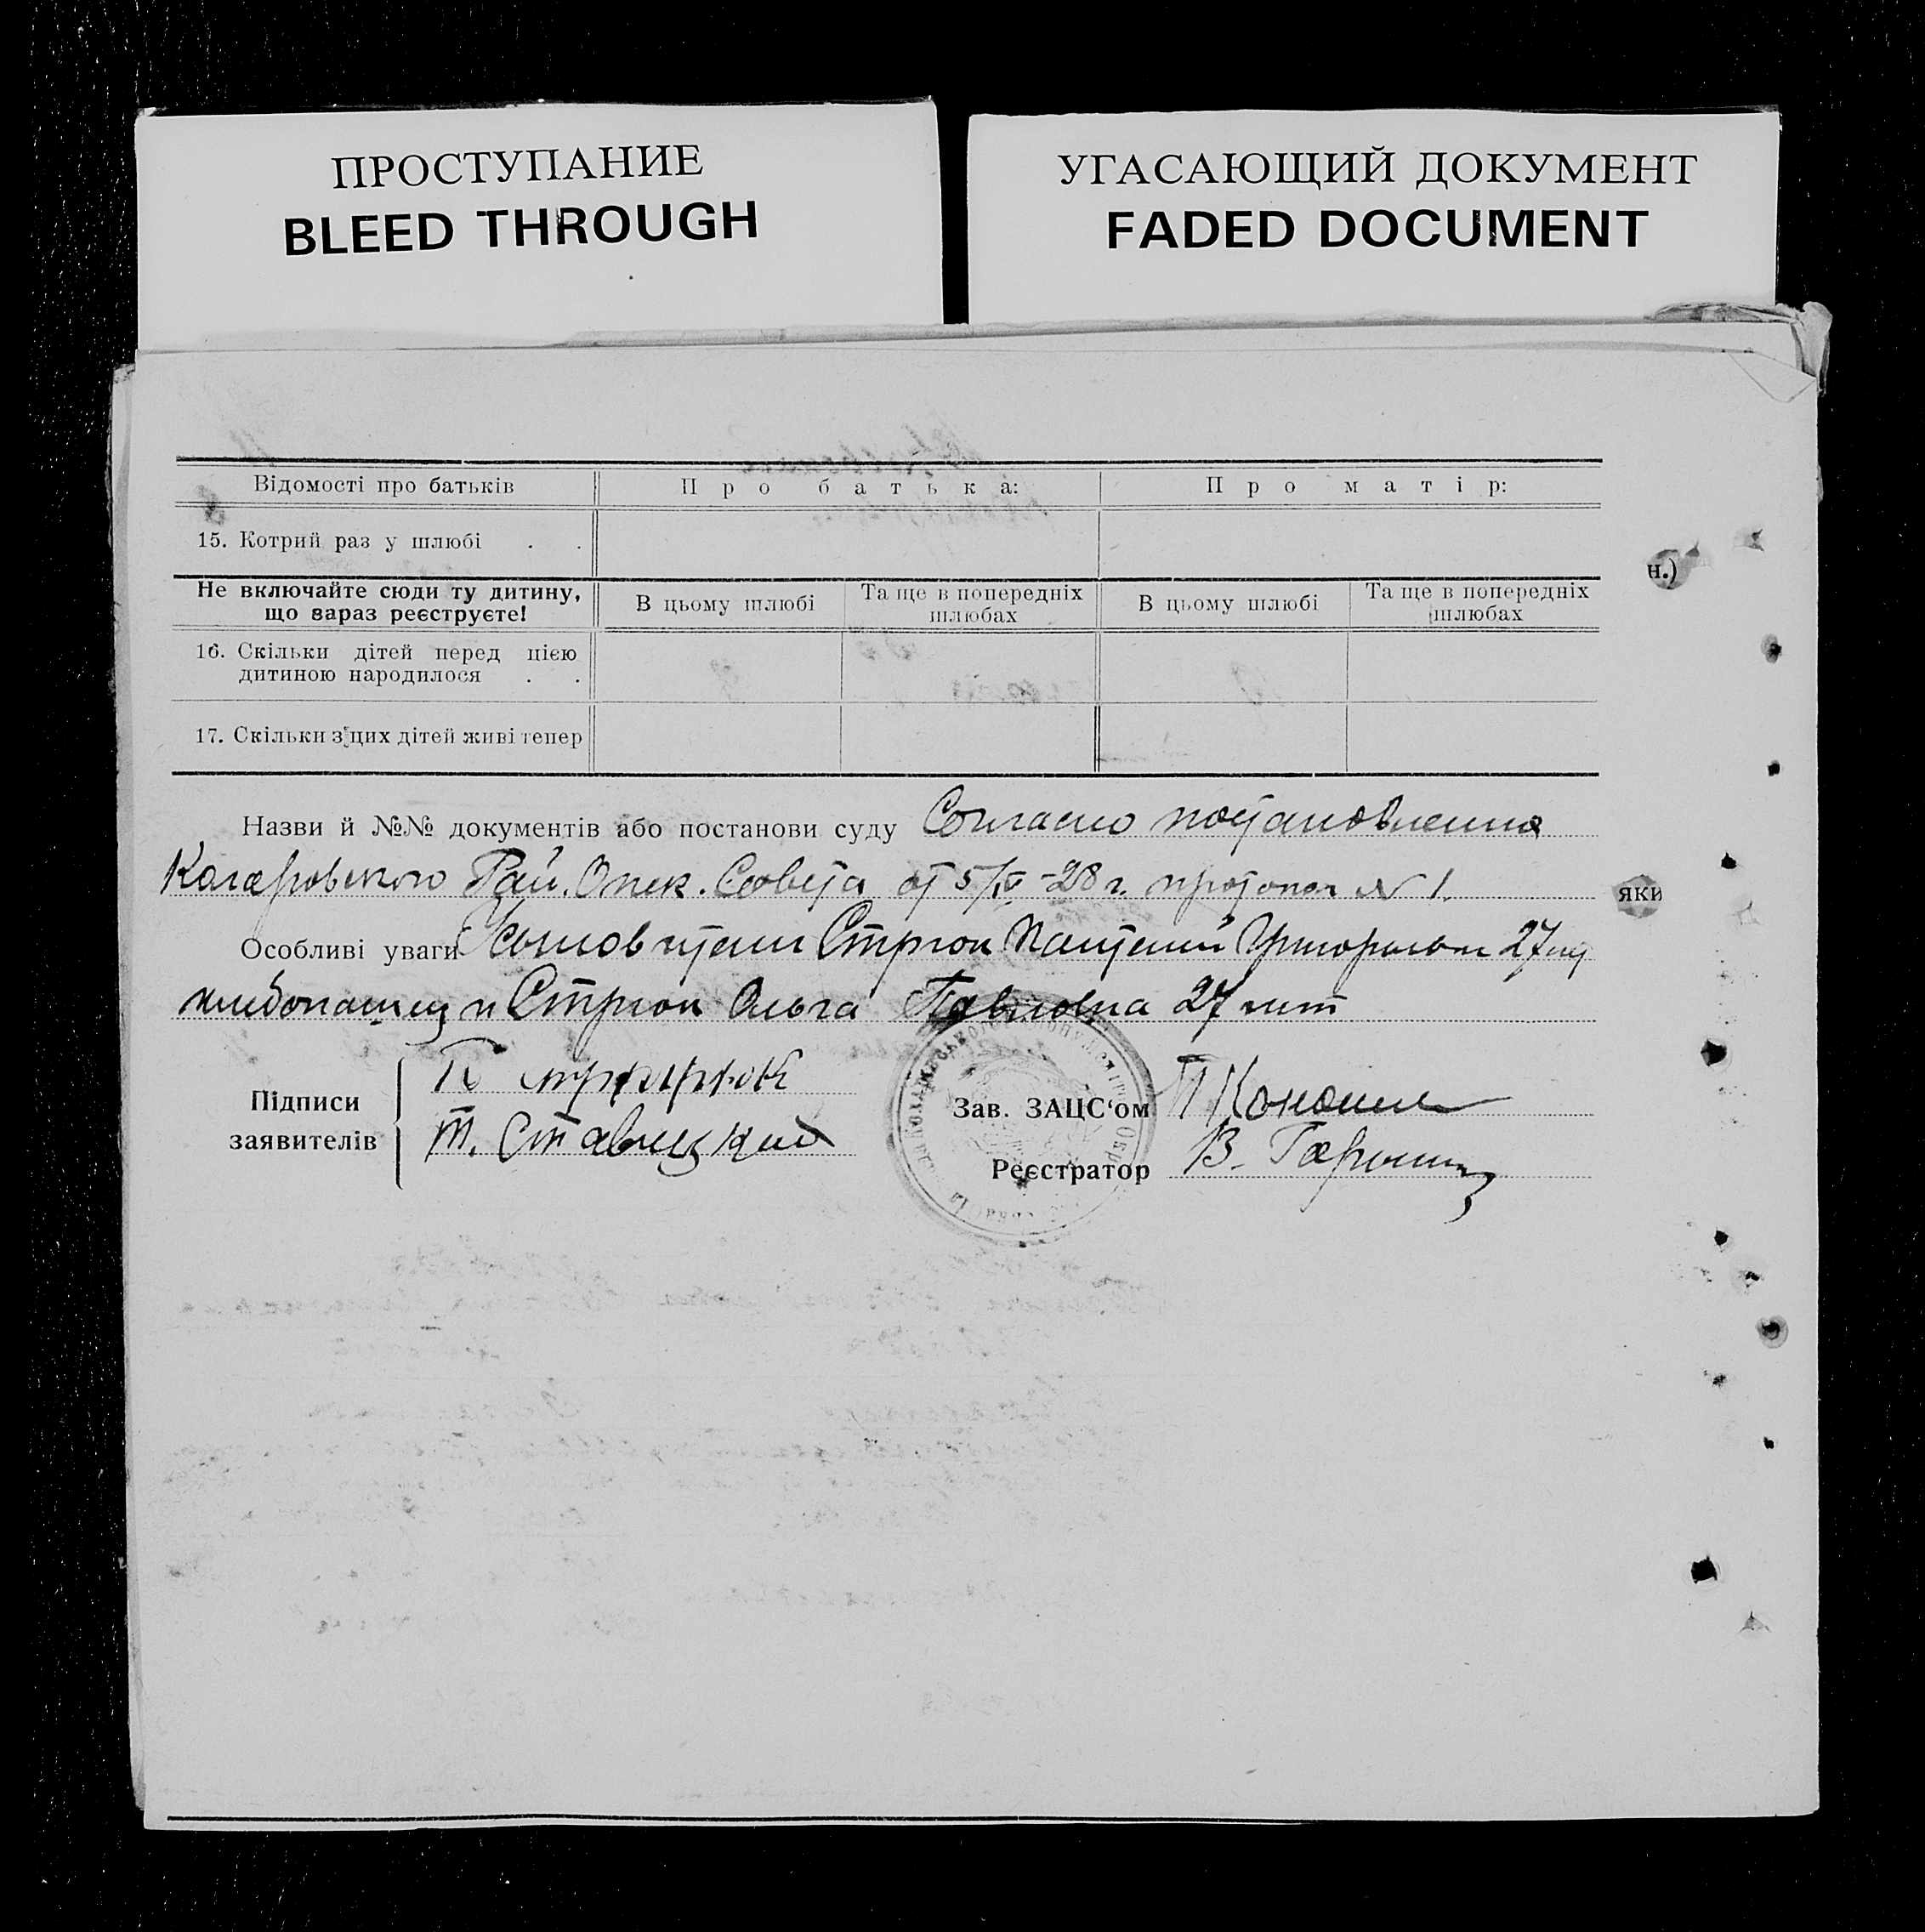 ПРОСТУПАНИЕ
BLEED THROUGH
УГАСАЮЩИЙ ДОКУМЕНТ
FADED DOCUMENT
Відомості про батьків
Про батька:
Про матір:
15. Котрий раз у шлюбі . .
н.)
Не включайте сюди ту дитину,
що зараз реєструєте!
В цьому шлюбі
Та ще в попередніх
шлюбах
В цьому шлюбі
Та ще в попередніх
шлюбах
16. Скільки дітей перед цією
дитиною народилося . .
17. Скільки з цих дітей живі тепер
Назви й №№ документів або постанови суду Согласно постановления
Рай. Опек. Совета от 5/IV-28 г. протокол № 1.
яки
Особливі уваги 27 лет
хлебопашец и Ольга Павловна 27 лет
Підписи
заявителів
Т. Ставицкий
Зав. ЗАЦС‘ом
Реєстратор В.